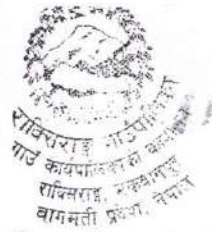 राक्सिराङ्ग गाउँपालिका
गाउँ कार्यपालिकाको
राक्सिराङ्ग, मकवानपुर
बागमती प्रदेश, नेपाल